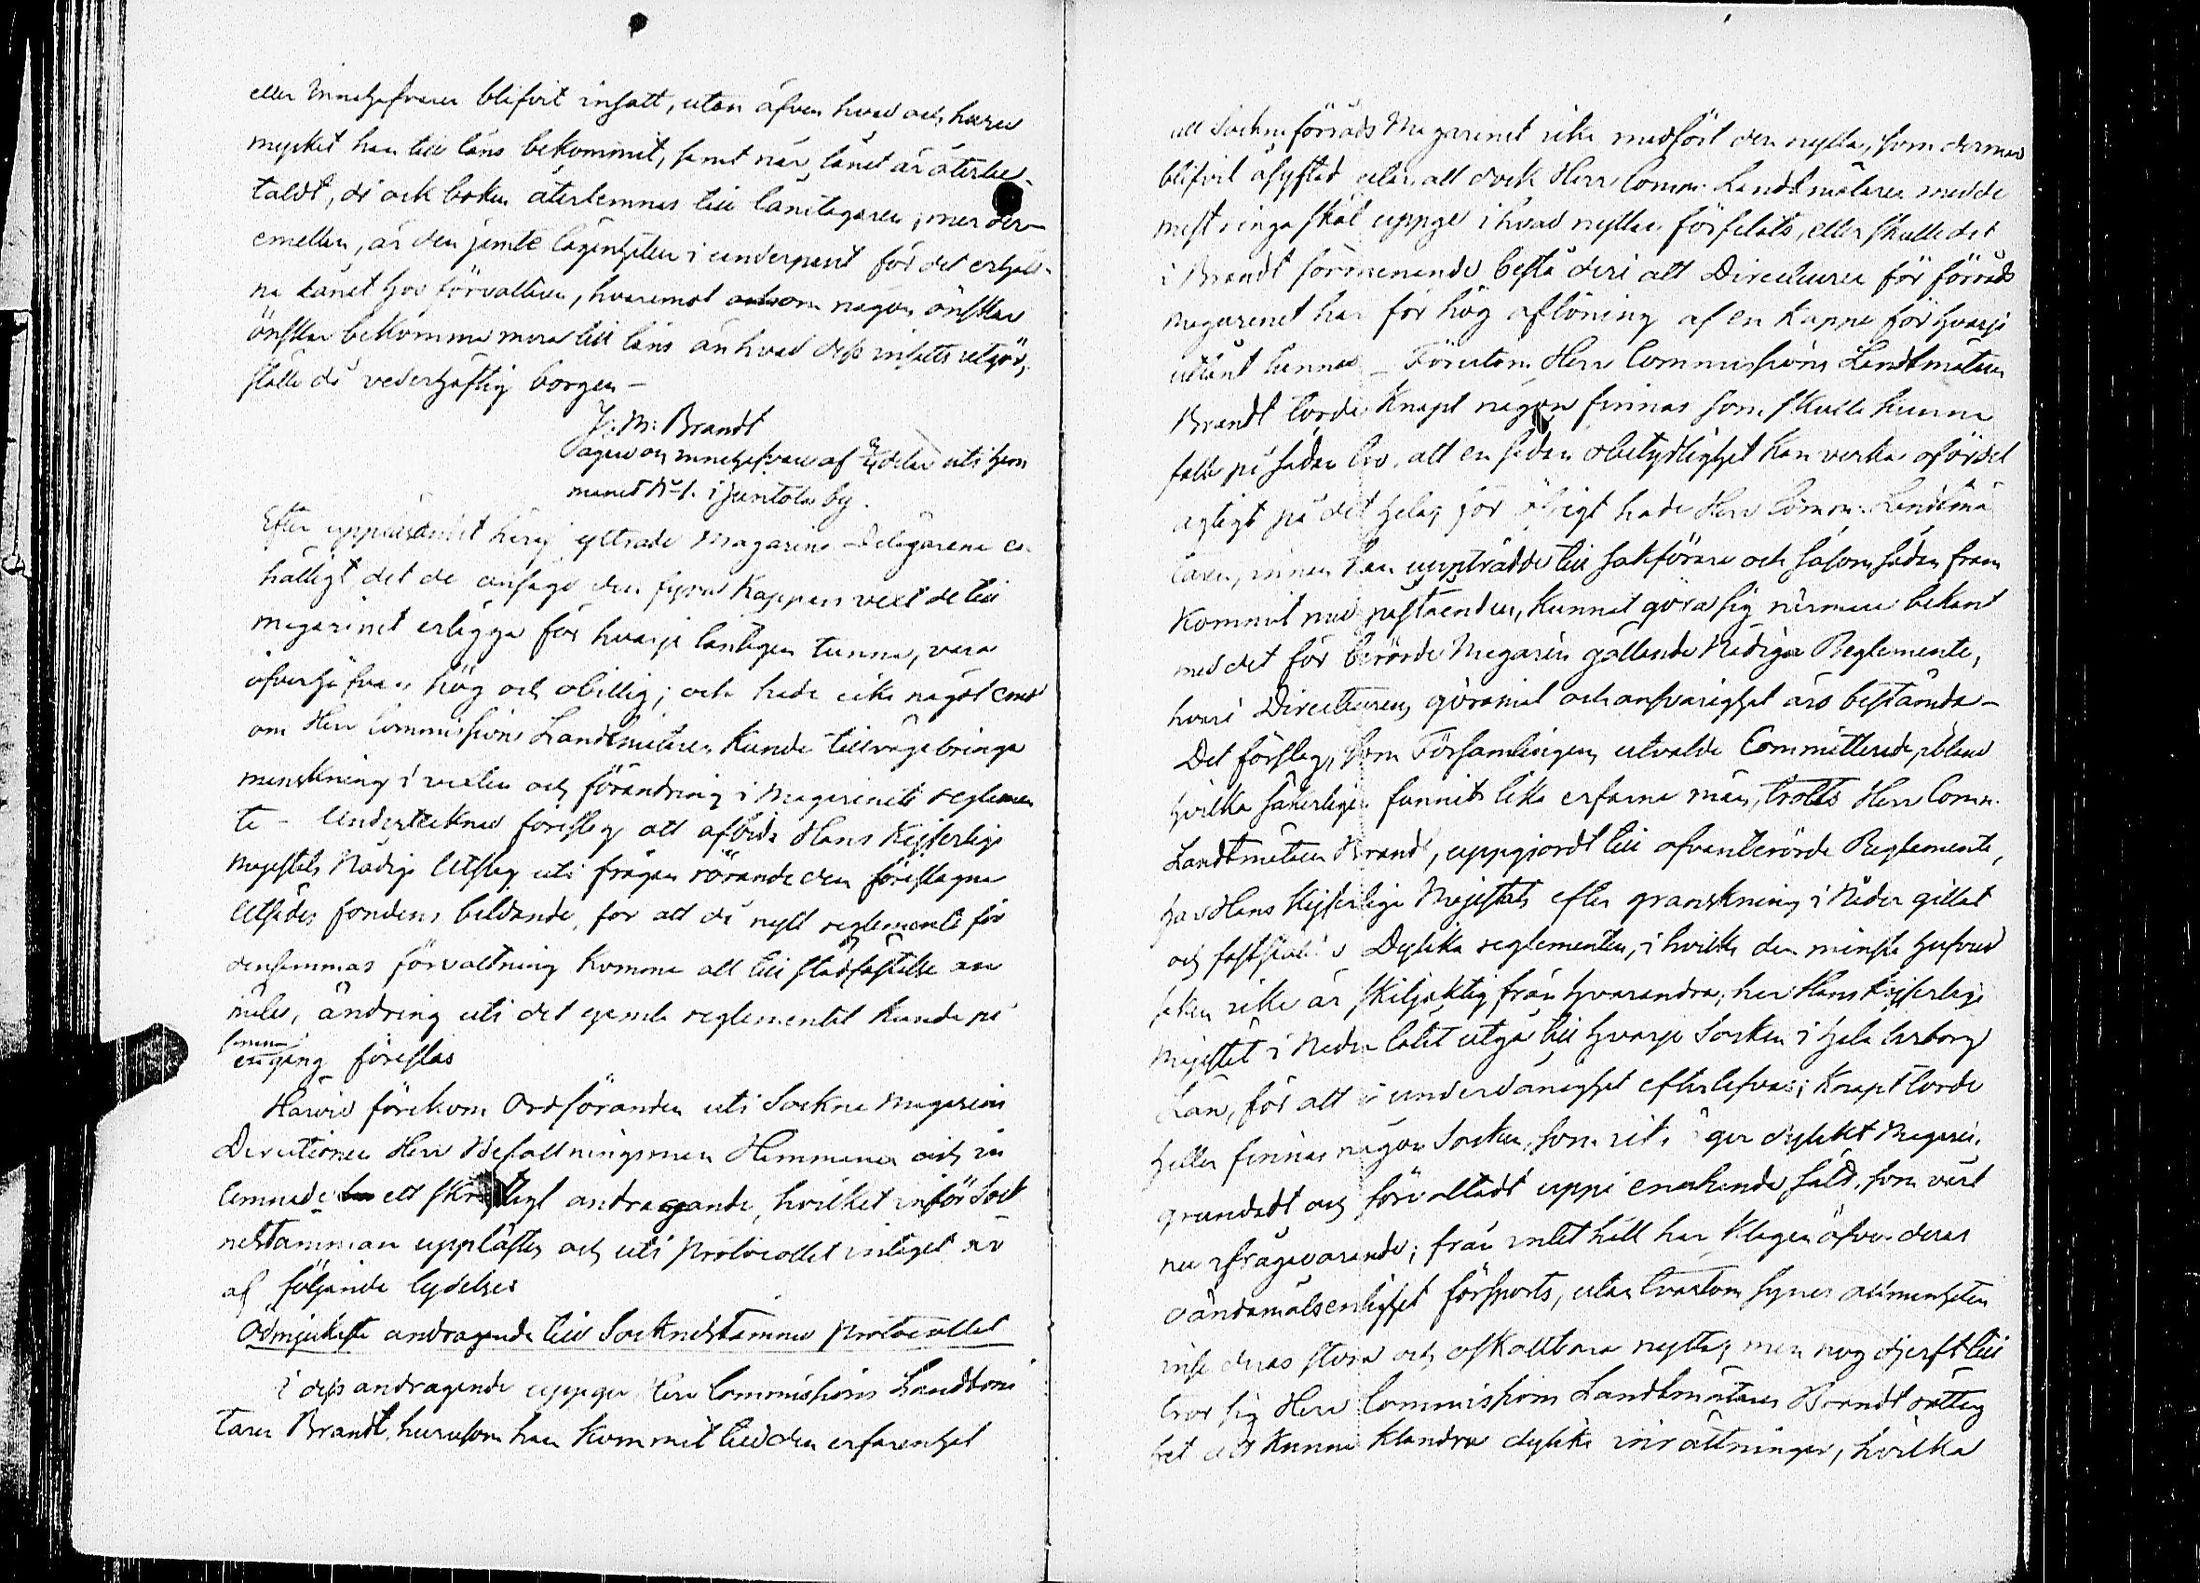 eller Innehafvaren blifvit insatt, utan äfven hvad och huru
mycket han till låns bekommit, samt när lånet är återbe-
taldt, då ock boken återlemnas till låntagaren; men der-
emellan, är den jemte lägenheten i underpant för det erhåll-
na lånet hos förvaltaren, hvaremot om någon önskar
önskar bekomma mera till låns än hvad dess insatts utgör,
ställe då vederhäftig borgen —
J: M: Brandt
ägare och innehafvare af delar uti hem
manet No 1. i Juntola by.
Efter uppläsandet häraf yttrade Magasins Delägarene en-
hälligt det de ansågo den fyra Kappars vext de till
magasinet erlägga för hvarje låntagen tunna, vara
öfverhöfvan hög och obillig; och hade icke något emot
om Herr Commissions Landtmätaren kunde tillvägabringa
minskning i vexten och förändring i Magasinets reglemen
te — Undertecknad föreslog att afbida Hans Kejserliga
Majestäts Nådiga Utslag uti frågan rörande den föreslagna
Utsädes fondens bildande, för att då nytt reglemente för
densammas förvaltning komme att till stadfästelse an
mälas, ändring uti det gamla reglementet kunde på
samma
engång föreslås
Härvid förekom Ordföranden uti Sockne Magasins
Directionen Herr Befallningsman Hemmaner och in
lemnade ett skriftligt andragande, hvilket inför Sock
nestämman upplästes och uti Protocollet intaget är
af följande lydelse
Ödmjukaste andragande till Socknestämmo Protocollet
I dess andragande uppger Herr Commissions Landtmä
taren Brandt, hurusom han kommit till den erfarenhet
att Sockne förråds Magasinet icke medfört den nytta, som dermed
blifvit åsyftad utan att dock Herr Comm: Landtmätaren med de
mest ringa skäl uppge i hvad nyttan förfelats, eller skulle det
i Brandts förmenande bestå deri att Directeuren för förråds
magasinet har för hög aflöning af en Kappa för hvarje
utlånt tunna — Förutom Herr Commissions Landtmätaren
Brandt torde knapt någon finnas som skulle kunna
falla på sådan tro, att en sådan obetydlighet kan verka ofördel
agtigt på det hela; för öfrigt hade Herr Comm: Landtmä
taren, innan han uppträdde till sakförare och såsom sådan fram
kommit med påståenden, kunnat göra sig närmare bekant
med det för berörde Magasin gällande Nådiga Reglemente,
hvari Directeurens göromål och ansvarighet äro bestämda —
Det förslag, som Församlingens utvalde Committerade, ibland
hvilka säkerligen funnits lika erfarna män, trotts Herr Comm.
Landtmätaren Brandt, uppgjordt till ofvanberörde Reglemente,
har Hans Kejserliga Majestät efter granskning i Nåder gillat
och fastställt. Dylika reglementen, i hvilka den minsta hufvud
saken icke är skiljaktig från hvarandra, har Hans Kejserliga
Majestät i Nåder låtit utgå till hvarje Socken i hela Wiborg
Län, för att i underdånighet efterlefvas; Knapt torde
heller finnas någon Socken, som icke äger dylikt Magasin,
grundadt och förvaltadt uppå enahanda sätt, som vårt
nu ifrågavarande; från intet håll har klagan öfver deras
oändamålsenlighet försports, utan tvärtom synes allmenheten
inse deras stora och oskattbara nytta, men nog djerft till
tror sig Herr Commissions Landtmätaren Brandt rättig
het att kunna klandra dylika inrättningar, hvilka